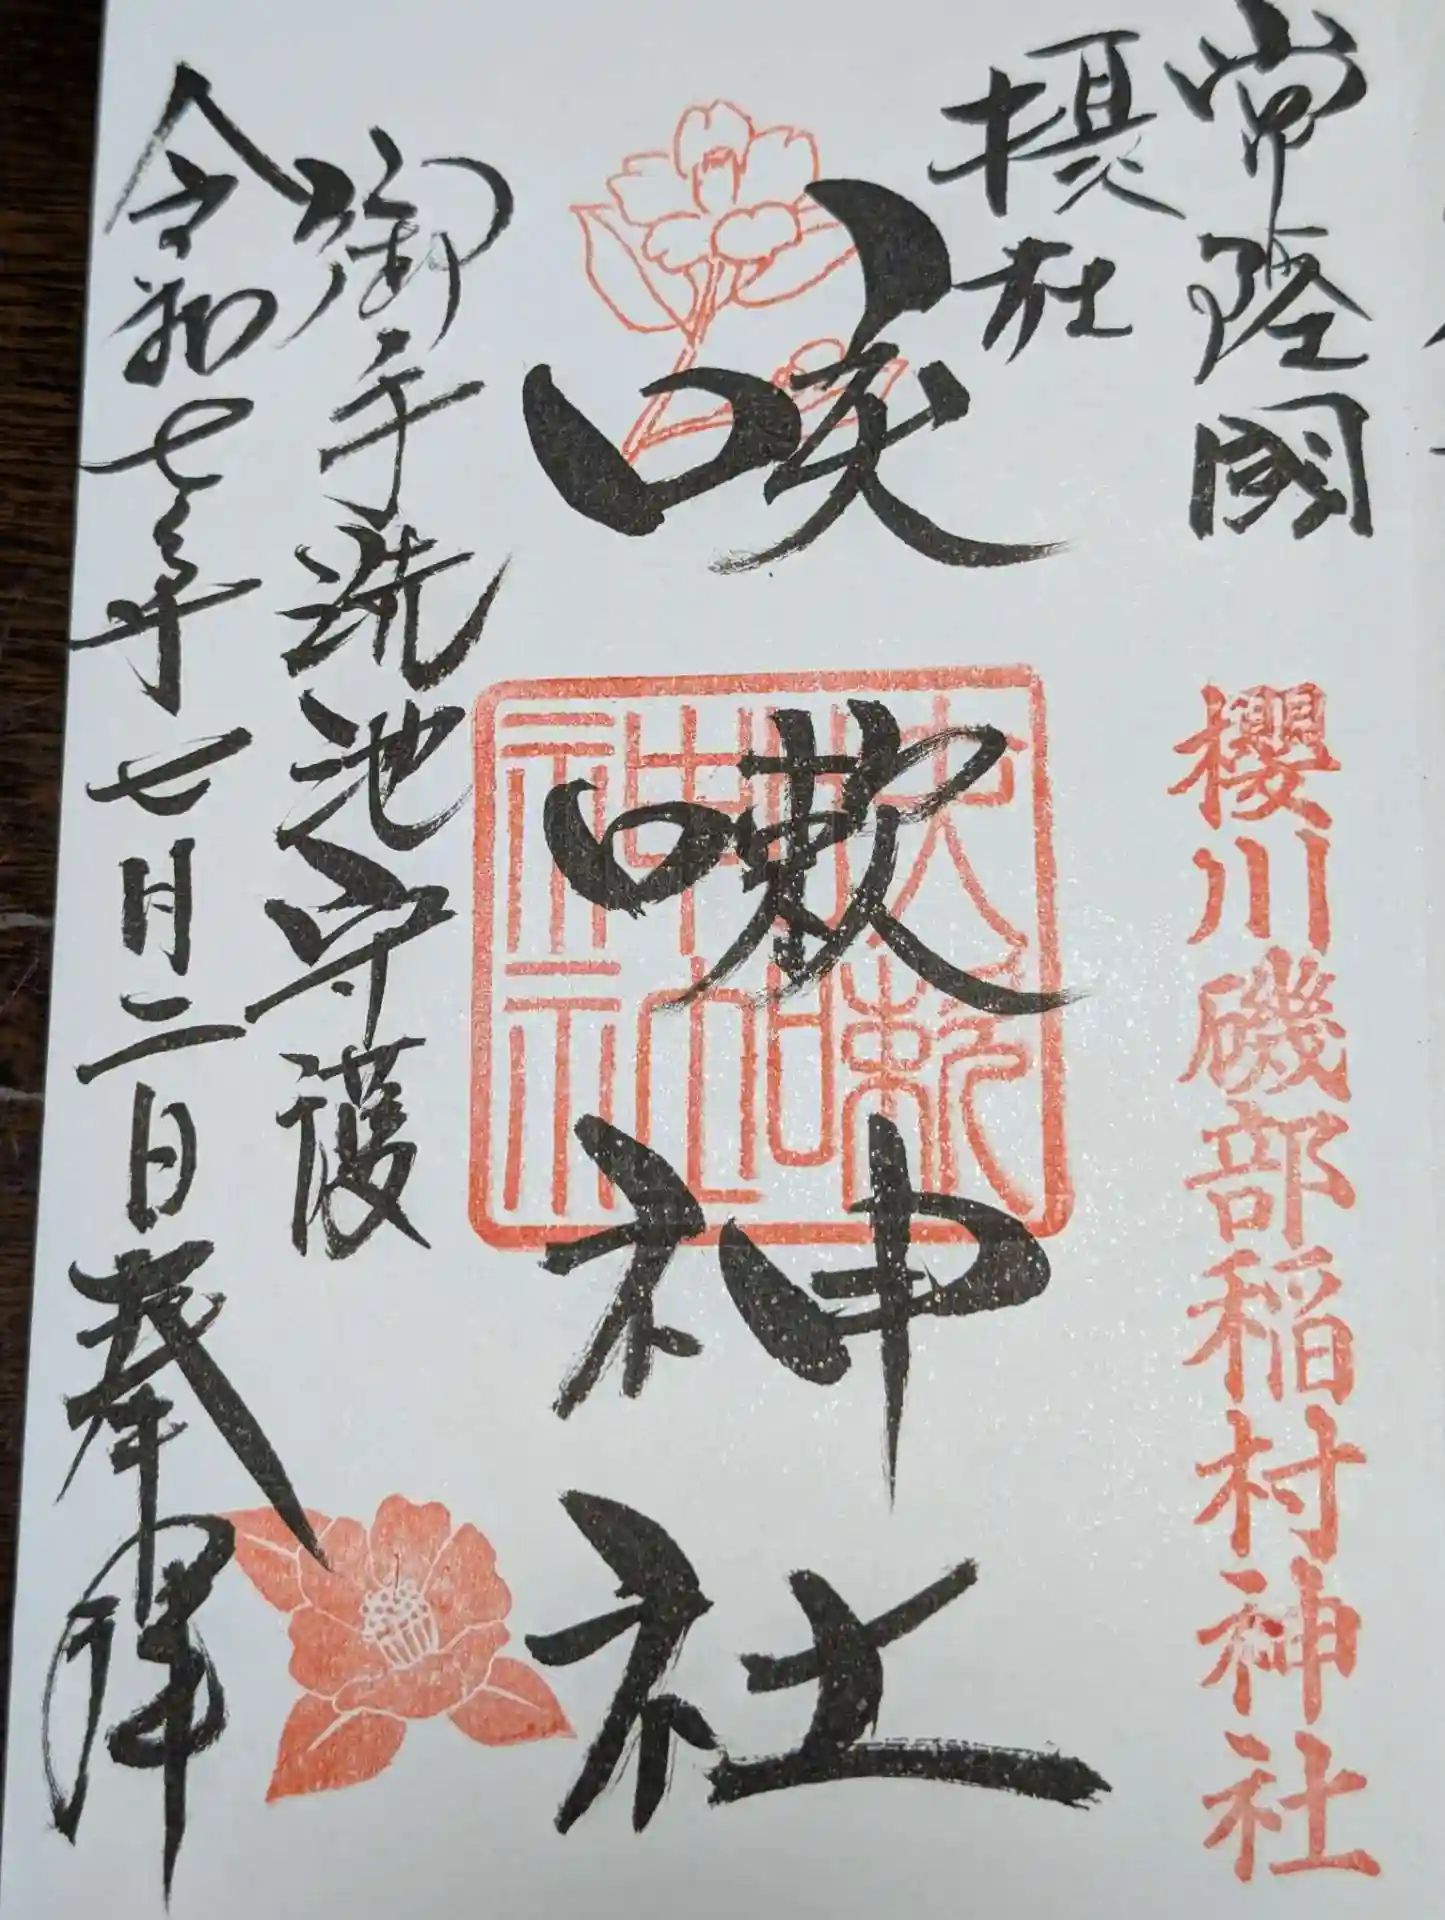 常陸國
櫻川磯部稲村神社
摂社
咳嗽神社
咳嗽
神社
御手洗池守護
令和七年七月二日奉拝